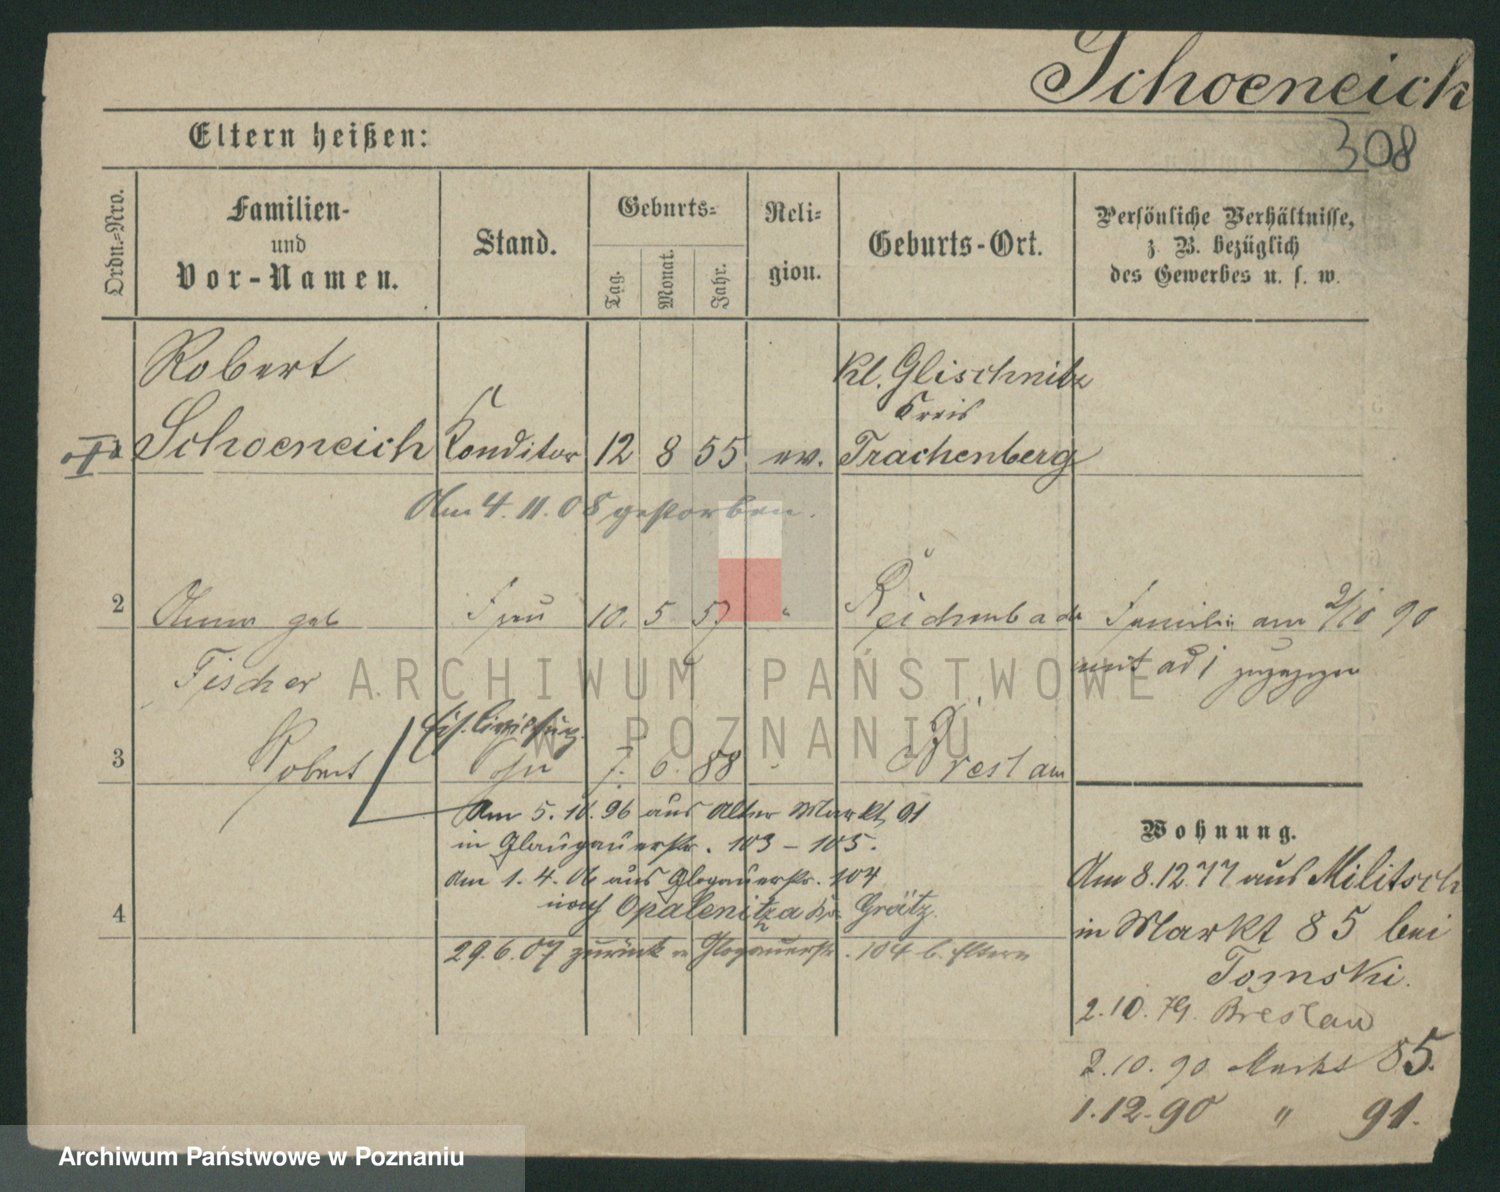 Schoeneich
308
Eltern heißen:
Ordn.-Nro.
Familien-
und
Vor-Namen.
Stand.
Geburts-
Tag.
Monat.
Jahr.
Reli-
gion.
Geburts-Ort.
Persönliche Verhältnisse,
z. B. bezüglich
des Gewerbes u. s. w.
Robert
Schoeneich Konditor 12 8 55 ev.
Kl. Glischnitz
Kreis
Trachenberg
Am 4. 11. 08 gestorben.
2 Anna geb Frau 10. 5 57 " Reichenbach
Fischer
Familie am 2/10 90
mit ad 1 zugezogen
3 Robert Sn 7. 6. 88 Breslau
Am 5. 10. 96 aus Alter Markt 91
in Glaugauerstr. 103 – 105.
Am 1. 4. 06 aus Glogauerstr. 104
4 nach Opalenitza Kr. Grätz.
29. 6. 07 zurück n Glogauerstr. 104 b. Eltern
Wohnung.
Am 8. 12. 77 aus Militsch
in Markt 85 bei
Tomski.
2. 10. 79. Breslau
2. 10. 90 Markt 85.
1. 12. 90 " 91.
ARCHIWUM PAŃSTWOWE
W POZNANIU
Archiwum Państwowe w Poznaniu